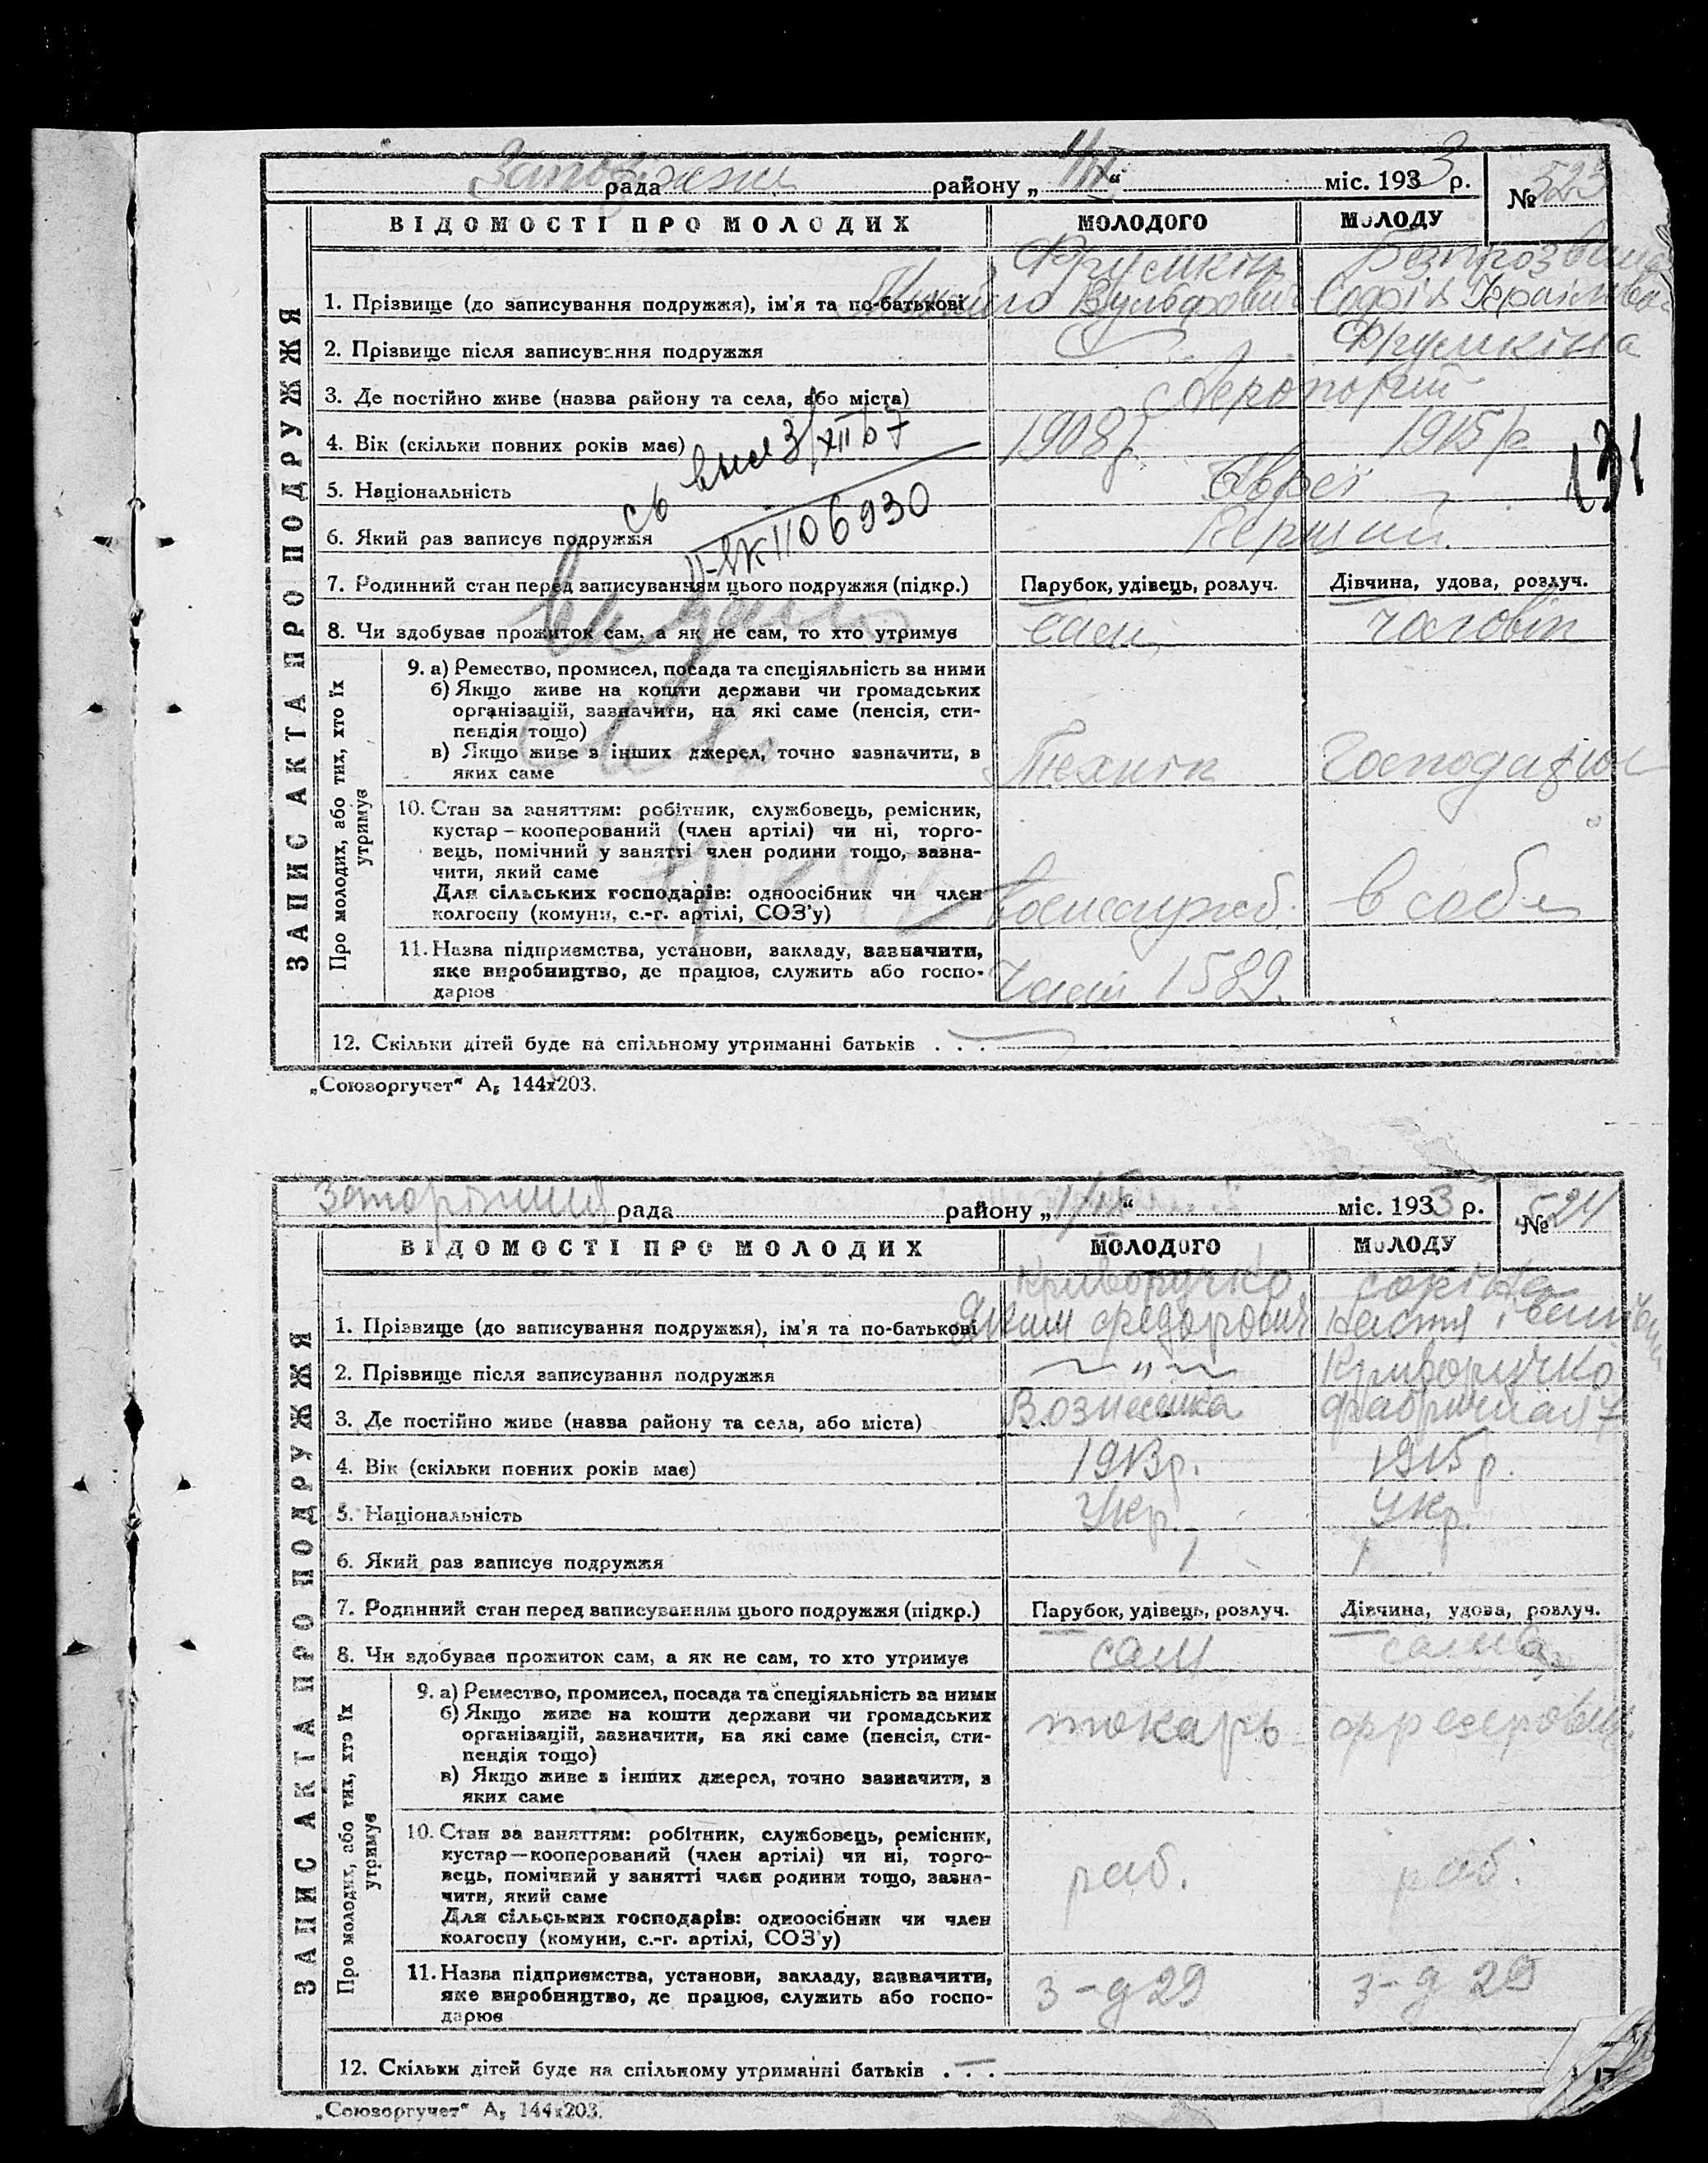 рада району „ “ міс. 1933 р. № 523
ЗАПИС АКТА ПРО ПОДРУЖЖЯ
ВІДОМОСТІ ПРО МОЛОДИХ МОЛОДОГО МОЛОДУ
Фрумкін
1. Прізвище (до записування подружжя), ім'я та по-батькові Вульфович Софія
2. Прізвище після записування подружжя Фрумкіна
3. Де постійно живе (назва району та села, або міста) Аеропорт
4. Вік (скільки повних років має) 1908 р. 1915 р.
131
5. Національність Євреї
6. Який раз записує подружжя Перший
св выд 3/XII 67
II-ЯК 1106930
7. Родинний стан перед записуванням цього подружжя (підкр.) Парубок, удівець, розлуч. Дівчина, удова, розлуч.
8. Чи здобуває прожиток сам, а як не сам, то хто утримує сам чоловік
Про молодих, або тих, хто їх утримує
9. а) Ремество, промисел, посада та спеціяльність за ними
б) Якщо живе на кошти держави чи громадських
організацій, зазначити, на які саме (пенсія, сти-
пендія тощо)
в) Якщо живе з інших джерел, точно зазначити, з
яких саме Технік
10. Стан за заняттям: робітник, службовець, ремісник,
кустар – кооперований (член артілі) чи ні, торго-
вець, помічний у занятті член родини тощо, зазна-
чити, який саме
Для сільських господарів: одноосібник чи член
колгоспу (комуни, с.-г. артілі, СОЗ'у)
11. Назва підприємства, установи, закладу, зазначити,
яке виробництво, де працює, служить або госпо- 1589.
дарює
12. Скільки дітей буде на спільному утриманні батьків . . . —
„Союзоргучет“ А5 144х203.
рада району „ “ міс. 1933 р. № 524
ЗАПИС АКТА ПРО ПОДРУЖЖЯ
ВІДОМОСТІ ПРО МОЛОДИХ МОЛОДОГО МОЛОДУ
Криворучко
1. Прізвище (до записування подружжя), ім'я та по-батькові Яким Федорович Настя
2. Прізвище після записування подружжя ~ „ ~ Криворучко
3. Де постійно живе (назва району та села, або міста) Вознесенка Фабричная 7
4. Вік (скільки повних років має) 1913 р. 1915 р.
5. Національність Укр. Укр.
6. Який раз записує подружжя 1 1
7. Родинний стан перед записуванням цього подружжя (підкр.) Парубок, удівець, розлуч. Дівчина, удова, розлуч.
8. Чи здобуває прожиток сам, а як не сам, то хто утримує сам сама
Про молодих, або тих, хто їх утримує
9. а) Ремество, промисел, посада та спеціяльність за ними
б) Якщо живе на кошти держави чи громадських токарь
організацій, зазначити, на які саме (пенсія, сти-
пендія тощо)
в) Якщо живе з інших джерел, точно зазначити, з
яких саме
10. Стан за заняттям: робітник, службовець, ремісник,
кустар—кооперований (член артілі) чи ні, торго-
вець, помічний у занятті член родини тощо, зазна- раб. раб.
чити, який саме
Для сільських господарів: одноосібник чи член
колгоспу (комуни, с.-г. артілі, СОЗ'у)
11. Назва підприємства, установи, закладу, зазначити,
яке виробництво, де працює, служить або госпо- з-д 29 з-д 29
дарює
12. Скільки дітей буде на спільному утриманні батьків . . . —
„Союзоргучет“ А5 144х203.